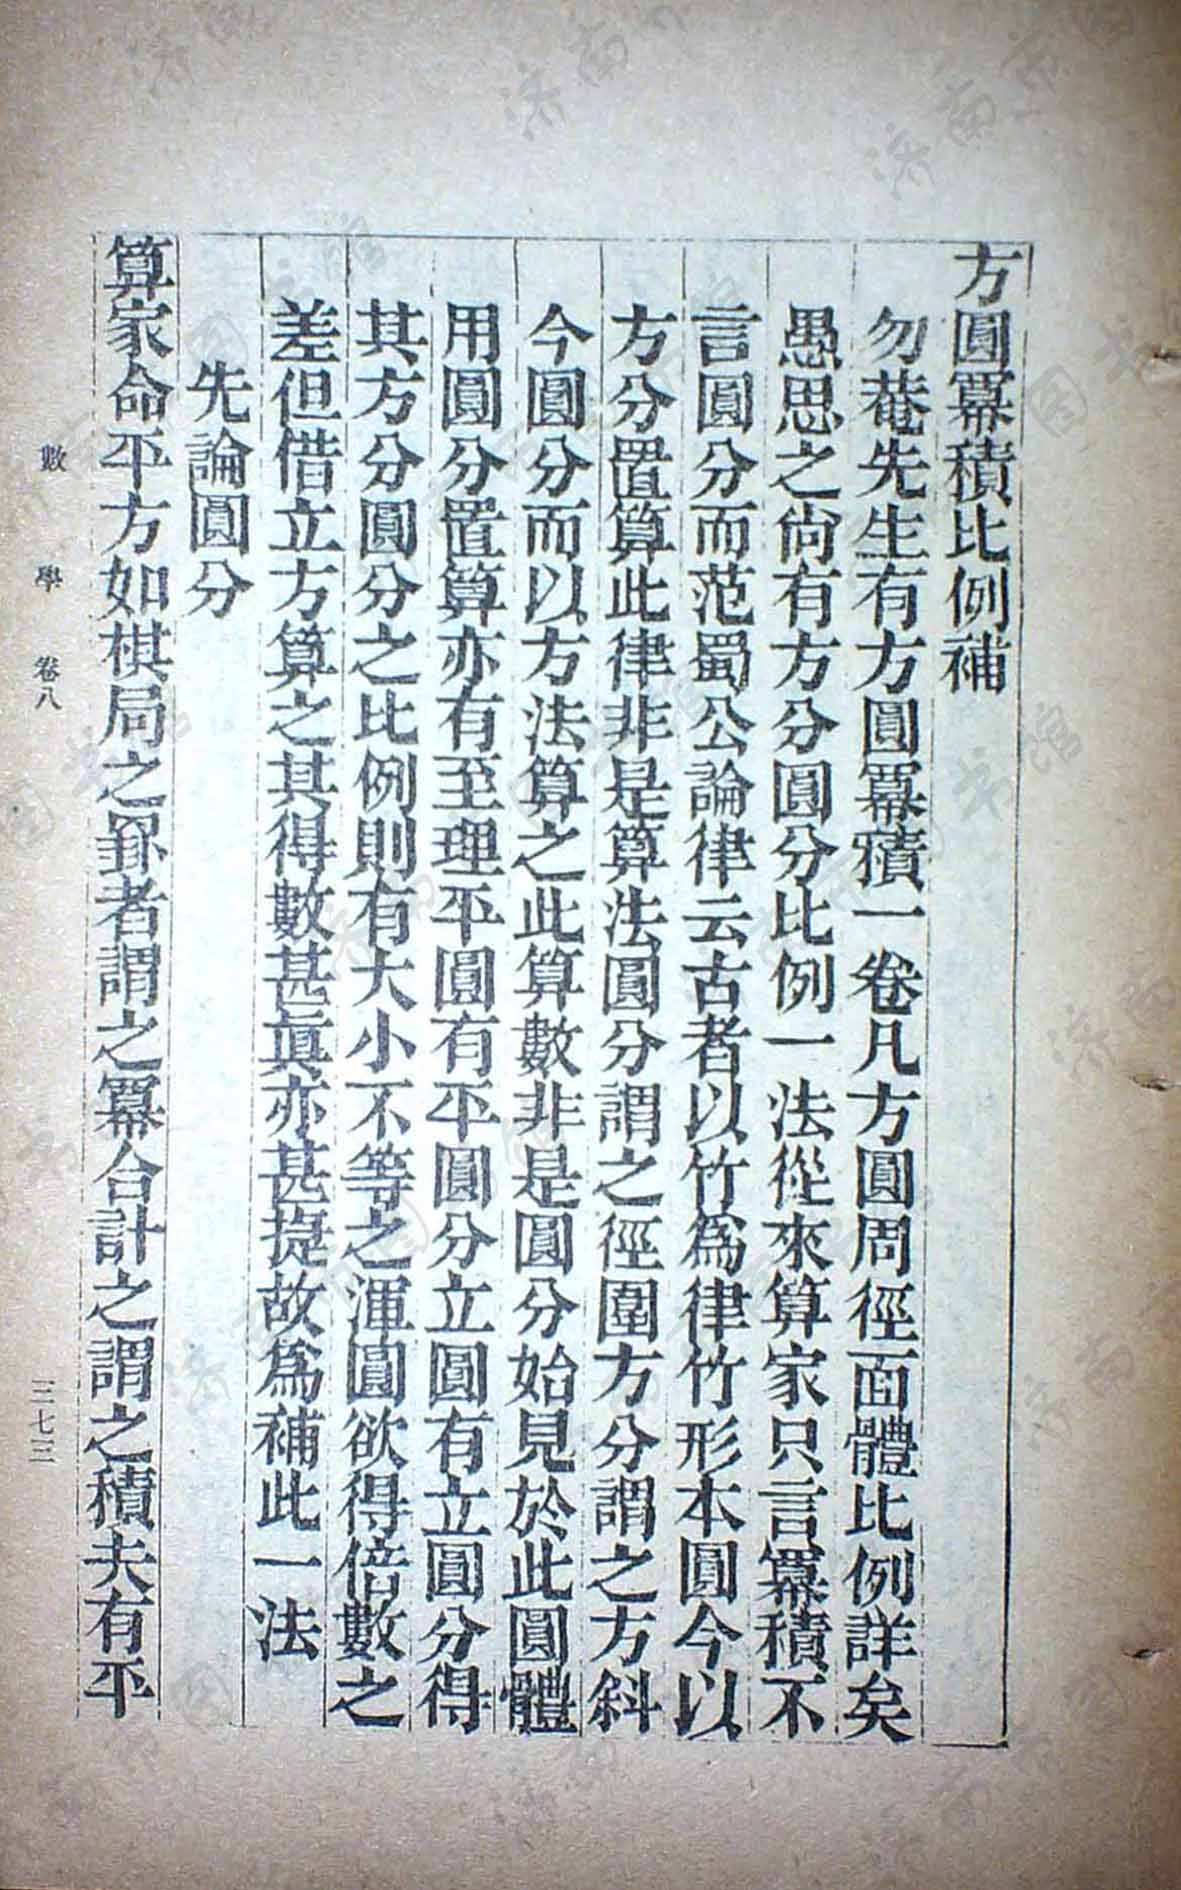 方圓冪積比例補
勿菴先生有方圓冪積一卷凡方圓周徑面體比例詳矣
愚思之尙有方分圓分比例一法從來算家只言冪積不
言圓分而范蜀公論律云古者以竹爲律竹形本圓今以
方分置算此律非是算法圓分謂之徑圍方分謂之方斜
今圓分而以方法算之此算數非是圓分始見於此圓體
用圓分置算亦有至理平圓有平圓分立圓有立圓分得
其方分圓分之比例則有大小不等之渾圓欲得倍數之
差但借立方算之其得數甚眞亦甚捷故爲補此一法
先論圓分
算家命平方如棋局之罫者謂之冪合計之謂之積夫有平
數學 卷八
三七三